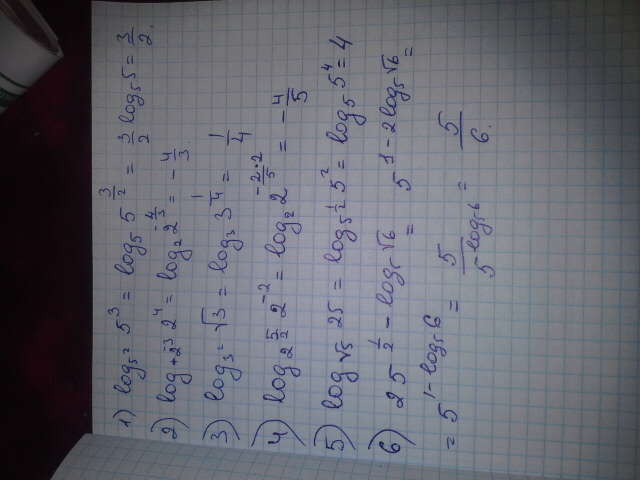 1) log₅² 5³ = log₅ 5^(3/2) = 3/2 log₅ 5 = 3/2.
2) log₂⁻³ 2⁴ = log₂ 2^(-4/3) = -4/3.
3) log₃² √3 = log₃ 3^(1/4) = 1/4
4) log_(2^(5/2)) 2⁻² = log₂ 2^(-2/5*2) = -4/5
5) log_√5 25 = log_(5^(1/2)) 5² = log₅ 5⁴ = 4
6) 25^(1/2 - log₅ √6) = 5^(1 - 2log₅ √6) =
= 5^(1 - log₅ 6) = 5/5^(log₅ 6) = 5/6.